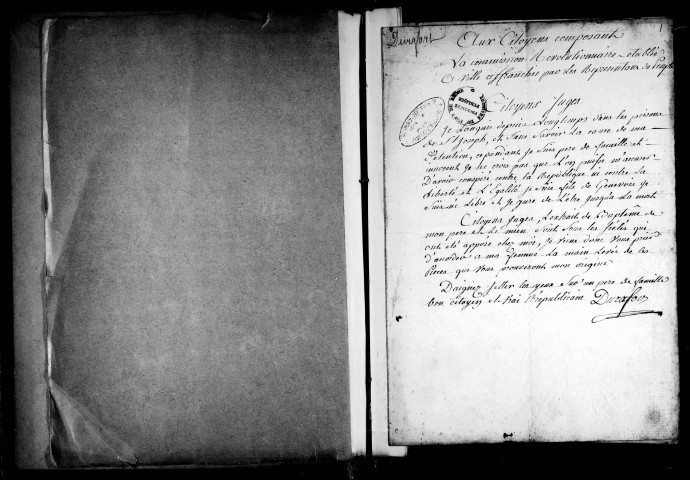 Durafort
Aux Citoyens composant
La commission Revolutionnaire établie
a Ville affranchie par Les Representans du peuple
Citoyens Juges
Je Languis depuis Longtemps dans les prisons
de St Joseph, et sans savoir La cause de ma
Detention, cependant je suis pere de famille et
innocent je ne crois pas que L'on puisse m'accuser
D'avoir conspiré contre la Republique ni contre La
Liberté et L'Egalité je suis fils de Genevois je
suis né Libre et je jure de L'etre jusqu'a La mort
Citoyens Juges, L'extrait de Bapteme de
mon pere et Le mien sont sous les scelés que
ont été apposé chez moi, je viens donc vous prier
d'acorder a ma femme La main Levée de ces
Pieces que vous prouveront mon origine
Daignez jetter les yeux sur un pere de famille
bon citoyen et vrai Republicain Durafort